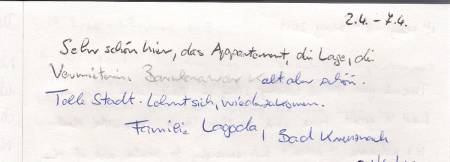 2.4. - 7.4.
Sehr schön hier, das Appartement, die Lage, die
Vermieterin alt aber schön.
Tolle Stadt. Lohnt sich, wiederzukommen.
Familie Lagoda, Bad Kreuznach